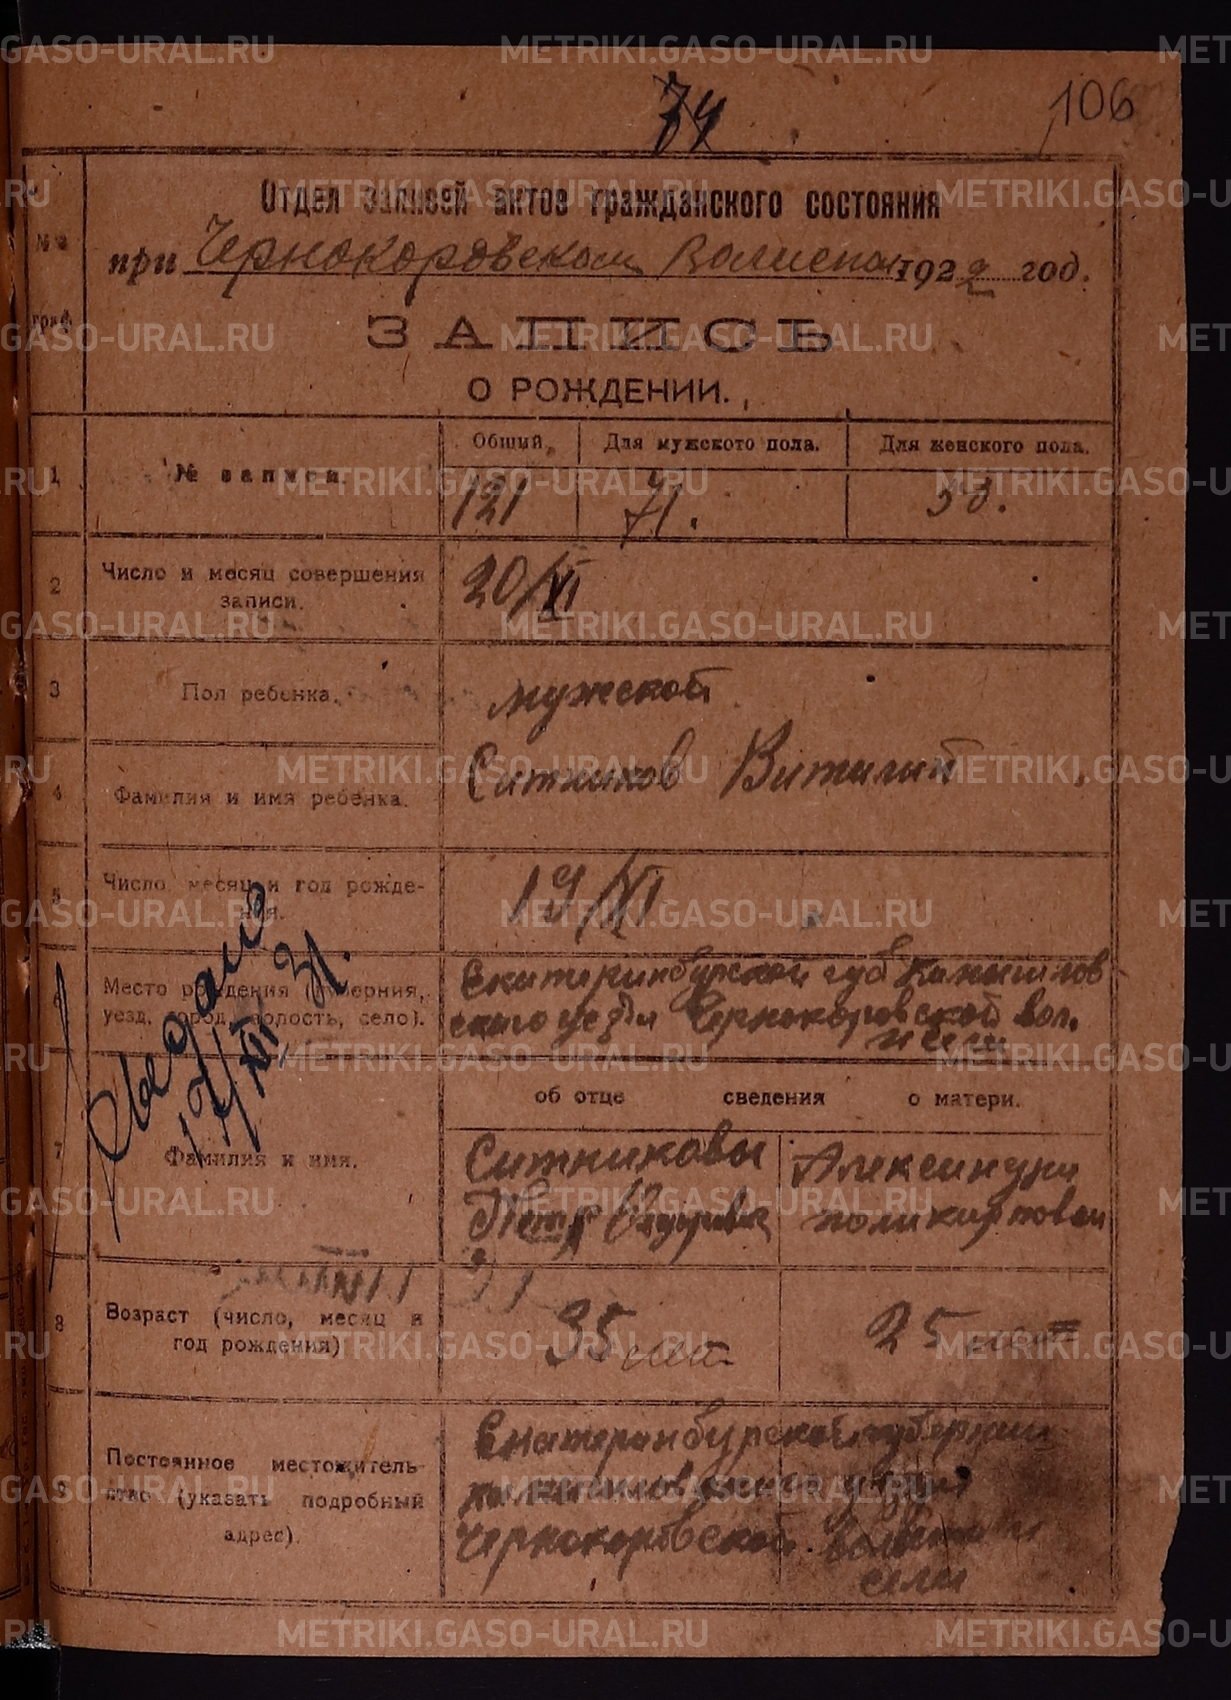 74
106
№№ граф
Отдел записей актов гражданского состояния
при Чернокоровском Волисполк 1922 год.
ЗАПИСЬ
О РОЖДЕНИИ.
Общий. Для мужского пола. Для женского пола.
1 № записи. 121 71. 50.
2 Число и месяц совершения
записи. 20/XI
3 Пол ребенка. мужской
4 Фамилия и имя ребенка. Ситников Виталий
5 Число месяц и год рожде-
ния. 19/XI
6 Место рождения (губерния, Екатеринбургской губ Камышлов
уезд, город, волость, село). ского уезда Чернокоровской вол.
об отце сведения о матери.
7 Фамилия и имя. Ситниковы Александра
Петр поликарповна
8 Возраст (число, месяц и
год рождения) 35 лет 25 лет
9 Постоянное местожитель-
ство (указать подробный
адрес).
Екатеринбургской губернии
камышловского уезда
Чернокоровской волости
села
17/VII 31.
METRIKI.GASO-URAL.RU